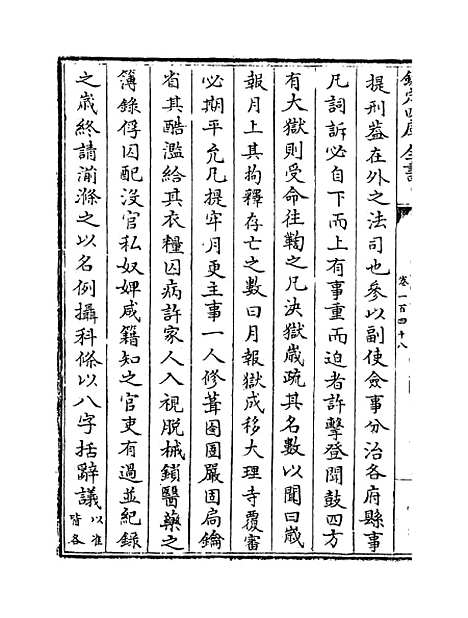 欽定四庫全書
卷一百四十八
提刑葢在外之法司也參以副使僉事分治各府縣事
凡詞訴必自下而上有事重而迫者許擊登聞鼓四方
有大獄則受命往鞫之凡決獄嵗疏其名數以聞曰嵗
報月上其拘釋存亡之數曰月報獄成移大理寺覆審
必期平允凡提牢月更主事一人修葺囹圄嚴固扃鑰
省其酷濫給其衣糧囚病許家人入視脱械鎖醫藥之
簿錄俘囚配沒官私奴婢咸籍知之官吏有過並紀錄
之嵗終請湔滌之以名例攝科條以八字括辭議以准皆各